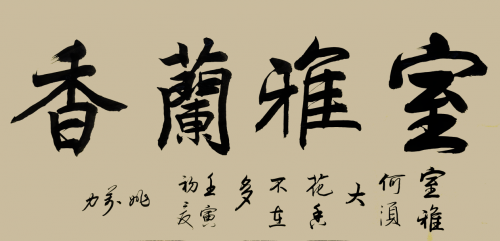 室雅蘭香
室雅
何須
大
花香
不在
多
壬寅
初夏
姚
力